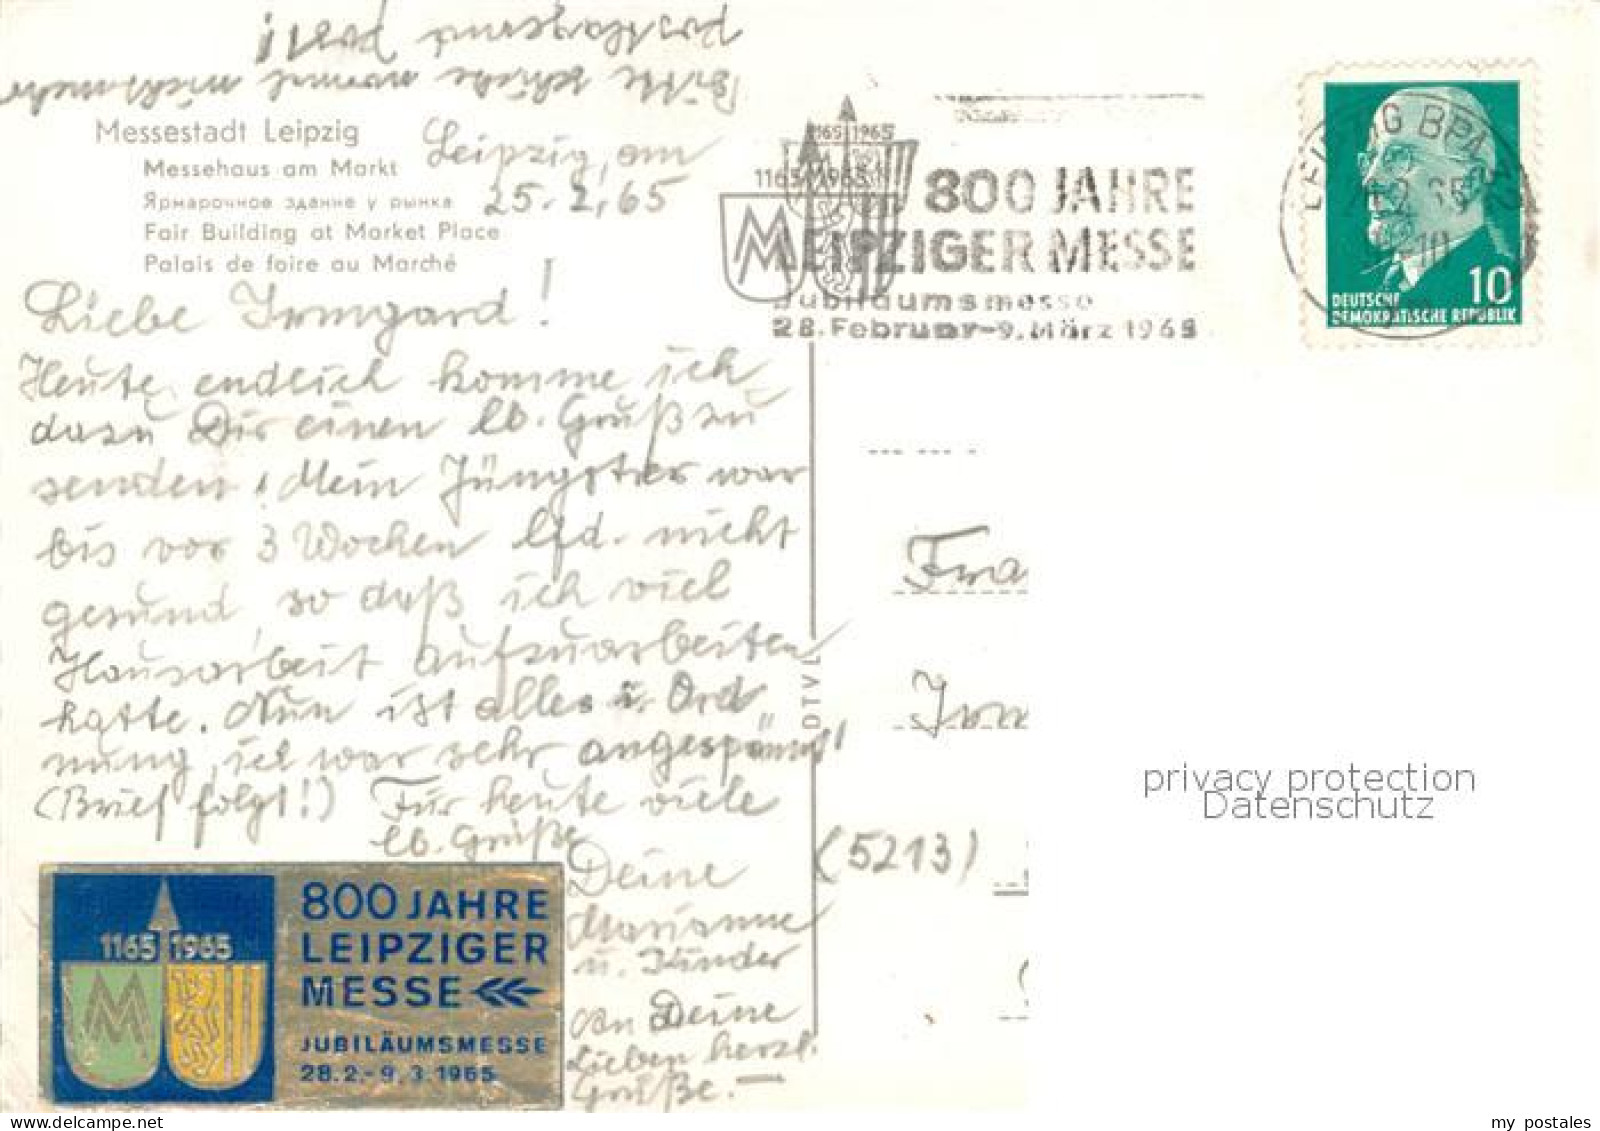 Bitte schicke mir mal nochmache
postkassend post!
Messestadt Leipzig
Messehaus am Markt
Ярмарочное здание у рынка
Fair Building at Market Place
Palais de foire au Marché
Leipzig, am
25.2.65
Liebe Irmgard!
Heute endlich komme ich
dazu Dir einen lb. Gruß zu
senden! Mein Jüngster war
bis vor 3 Wochen lfd. nicht
gesund, so daß ich viel
Hausarbeit aufzuarbeiten
hatte. Nun ist alles i. Ord
nung, ich war sehr angespannt!
(Brief folgt!) Für heute viele
lb. Grüße
Deine
Marianne
u. Kinder
an Deine
Lieben herzl.
Grüße.—
800 JAHRE
LEIPZIGER
MESSE
1165 1965
JUBILÄUMSMESSE
28.2.-9.3.1965
DTVL
1165 1965
1165 1965
800 JAHRE
LEIPZIGER MESSE
Jubiläumsmesse
28. Februar-9. März 1965
LEIPZIG BPA
10
DEUTSCHE
DEMOKRATISCHE REPUBLIK
Fra
Irm
(5213)
privacy protection
Datenschutz
my postales